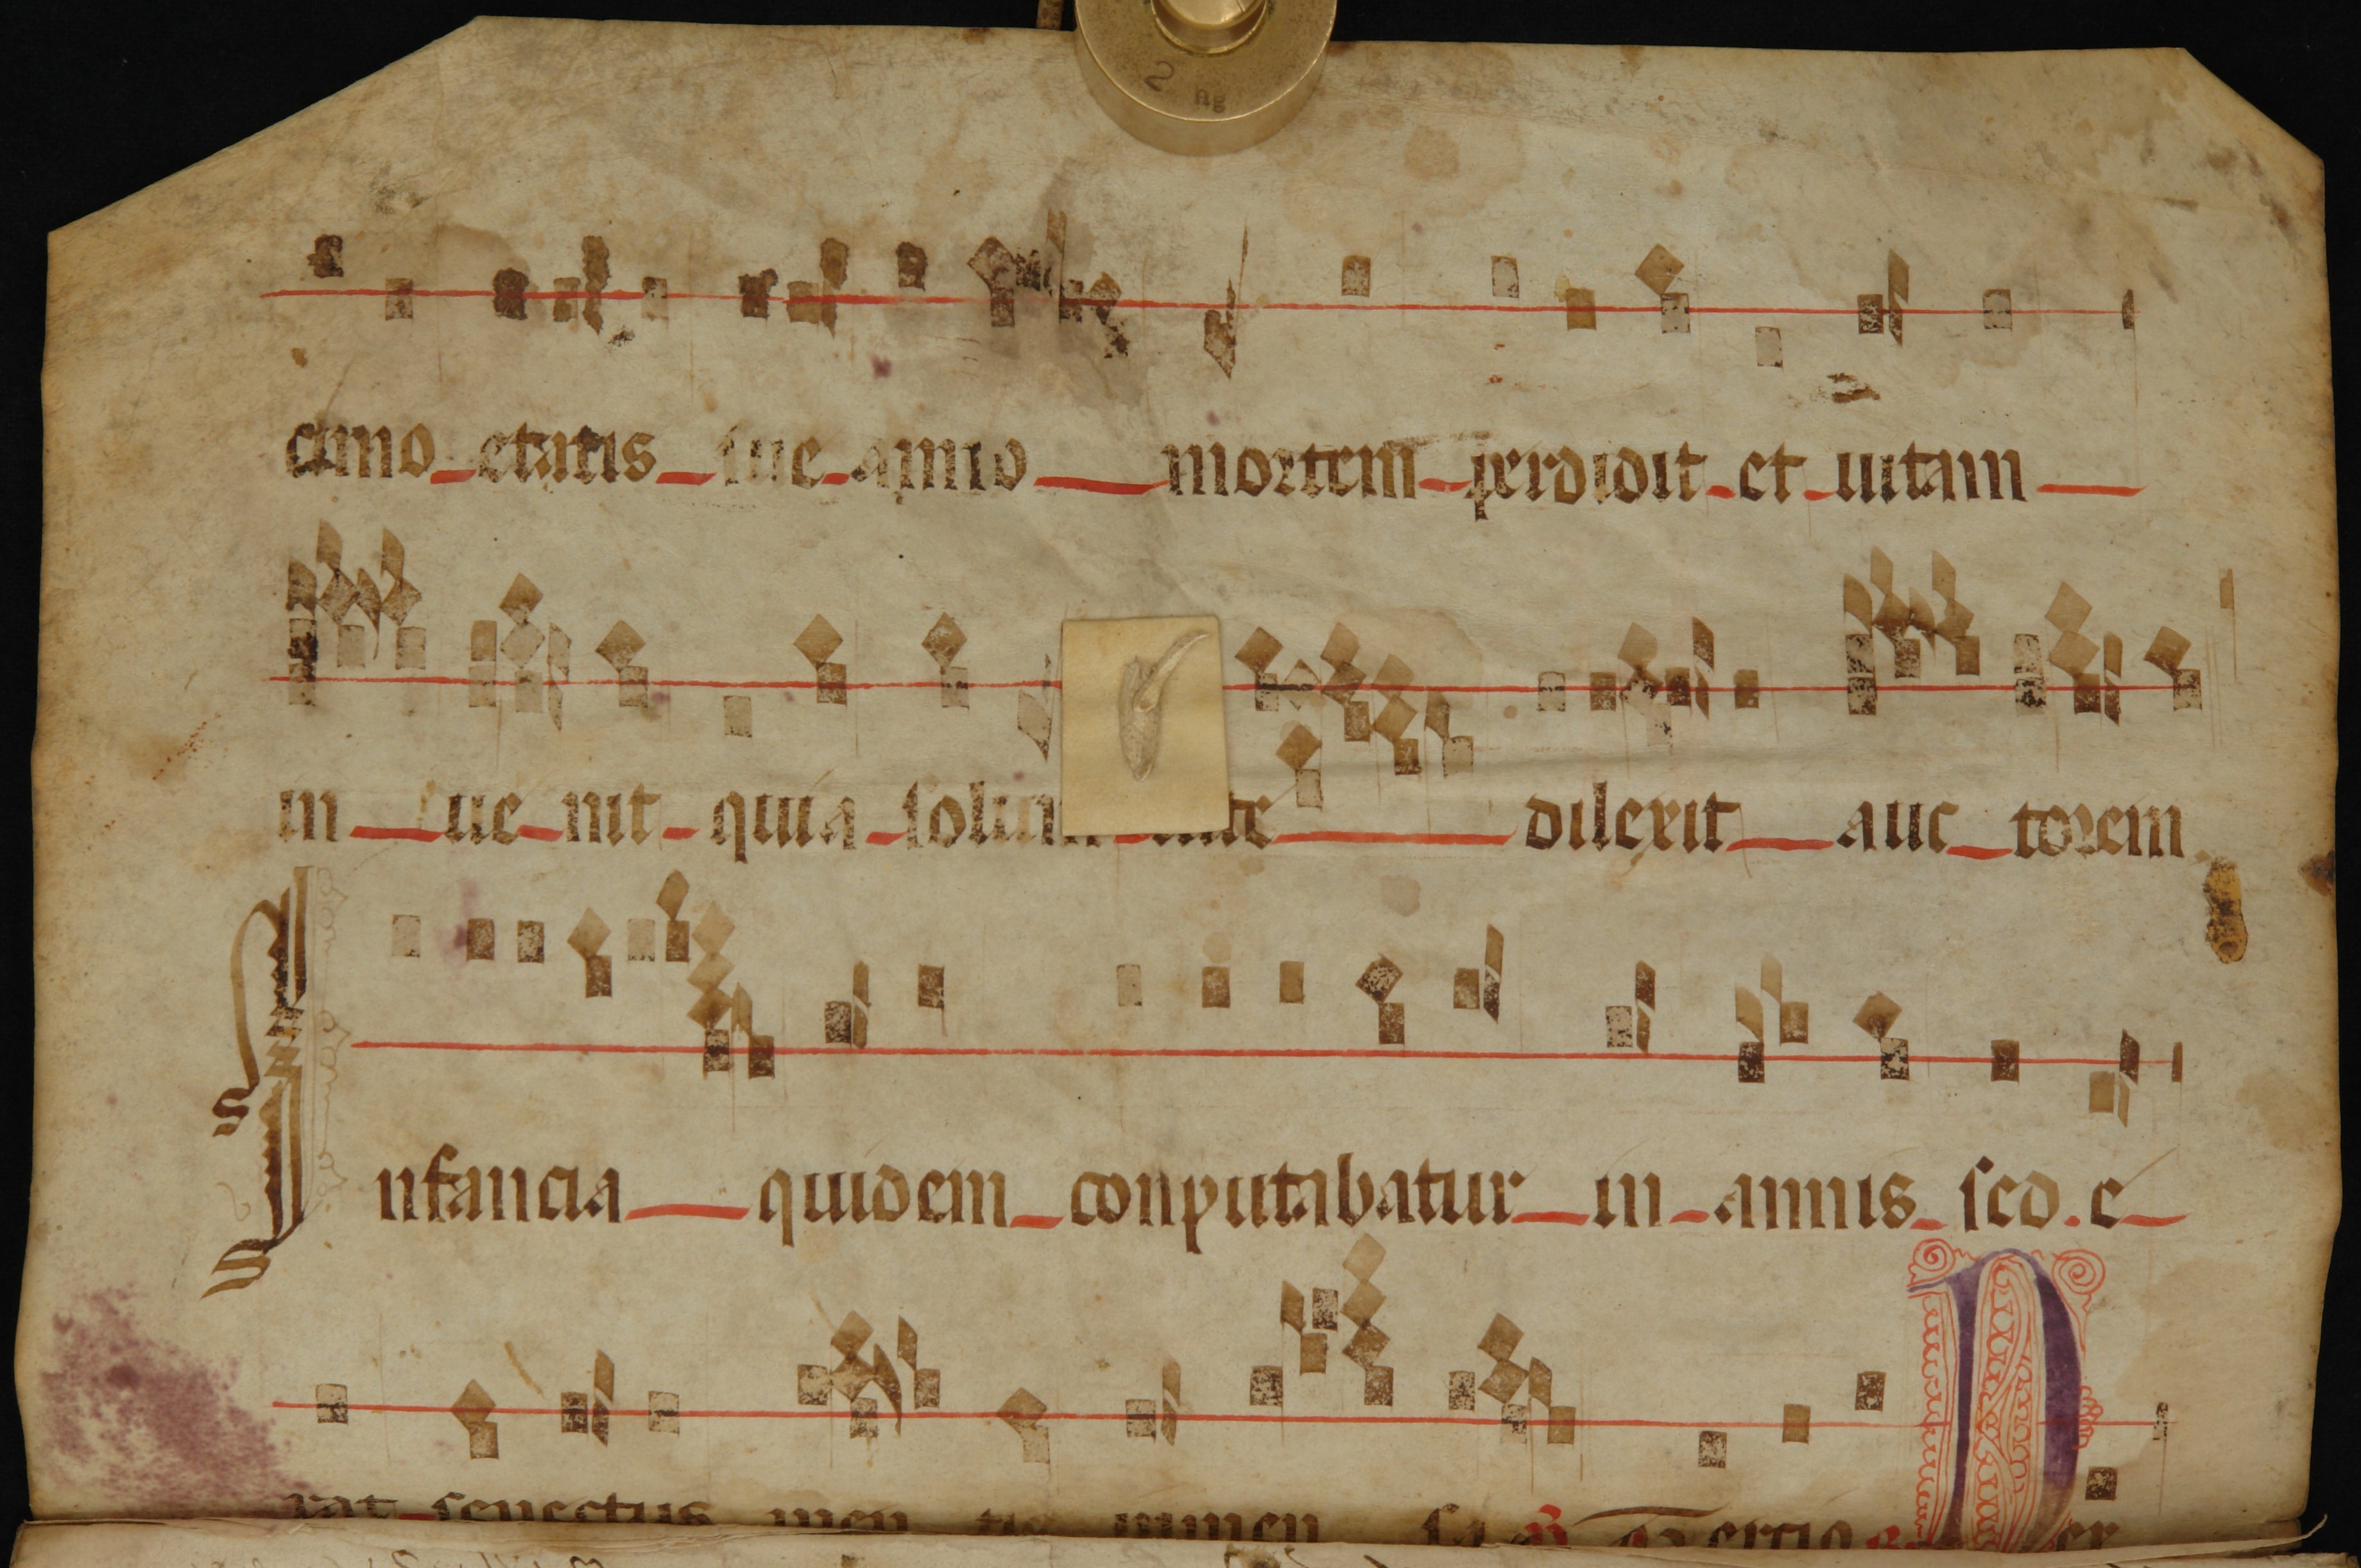 2 hg
cimo etatis sue anno mortem perdidit et uitam
in ue nit quia solum dilexit auc torem
Infancia quidem conputabatur in annis sed e
rat senectus men tis inmen